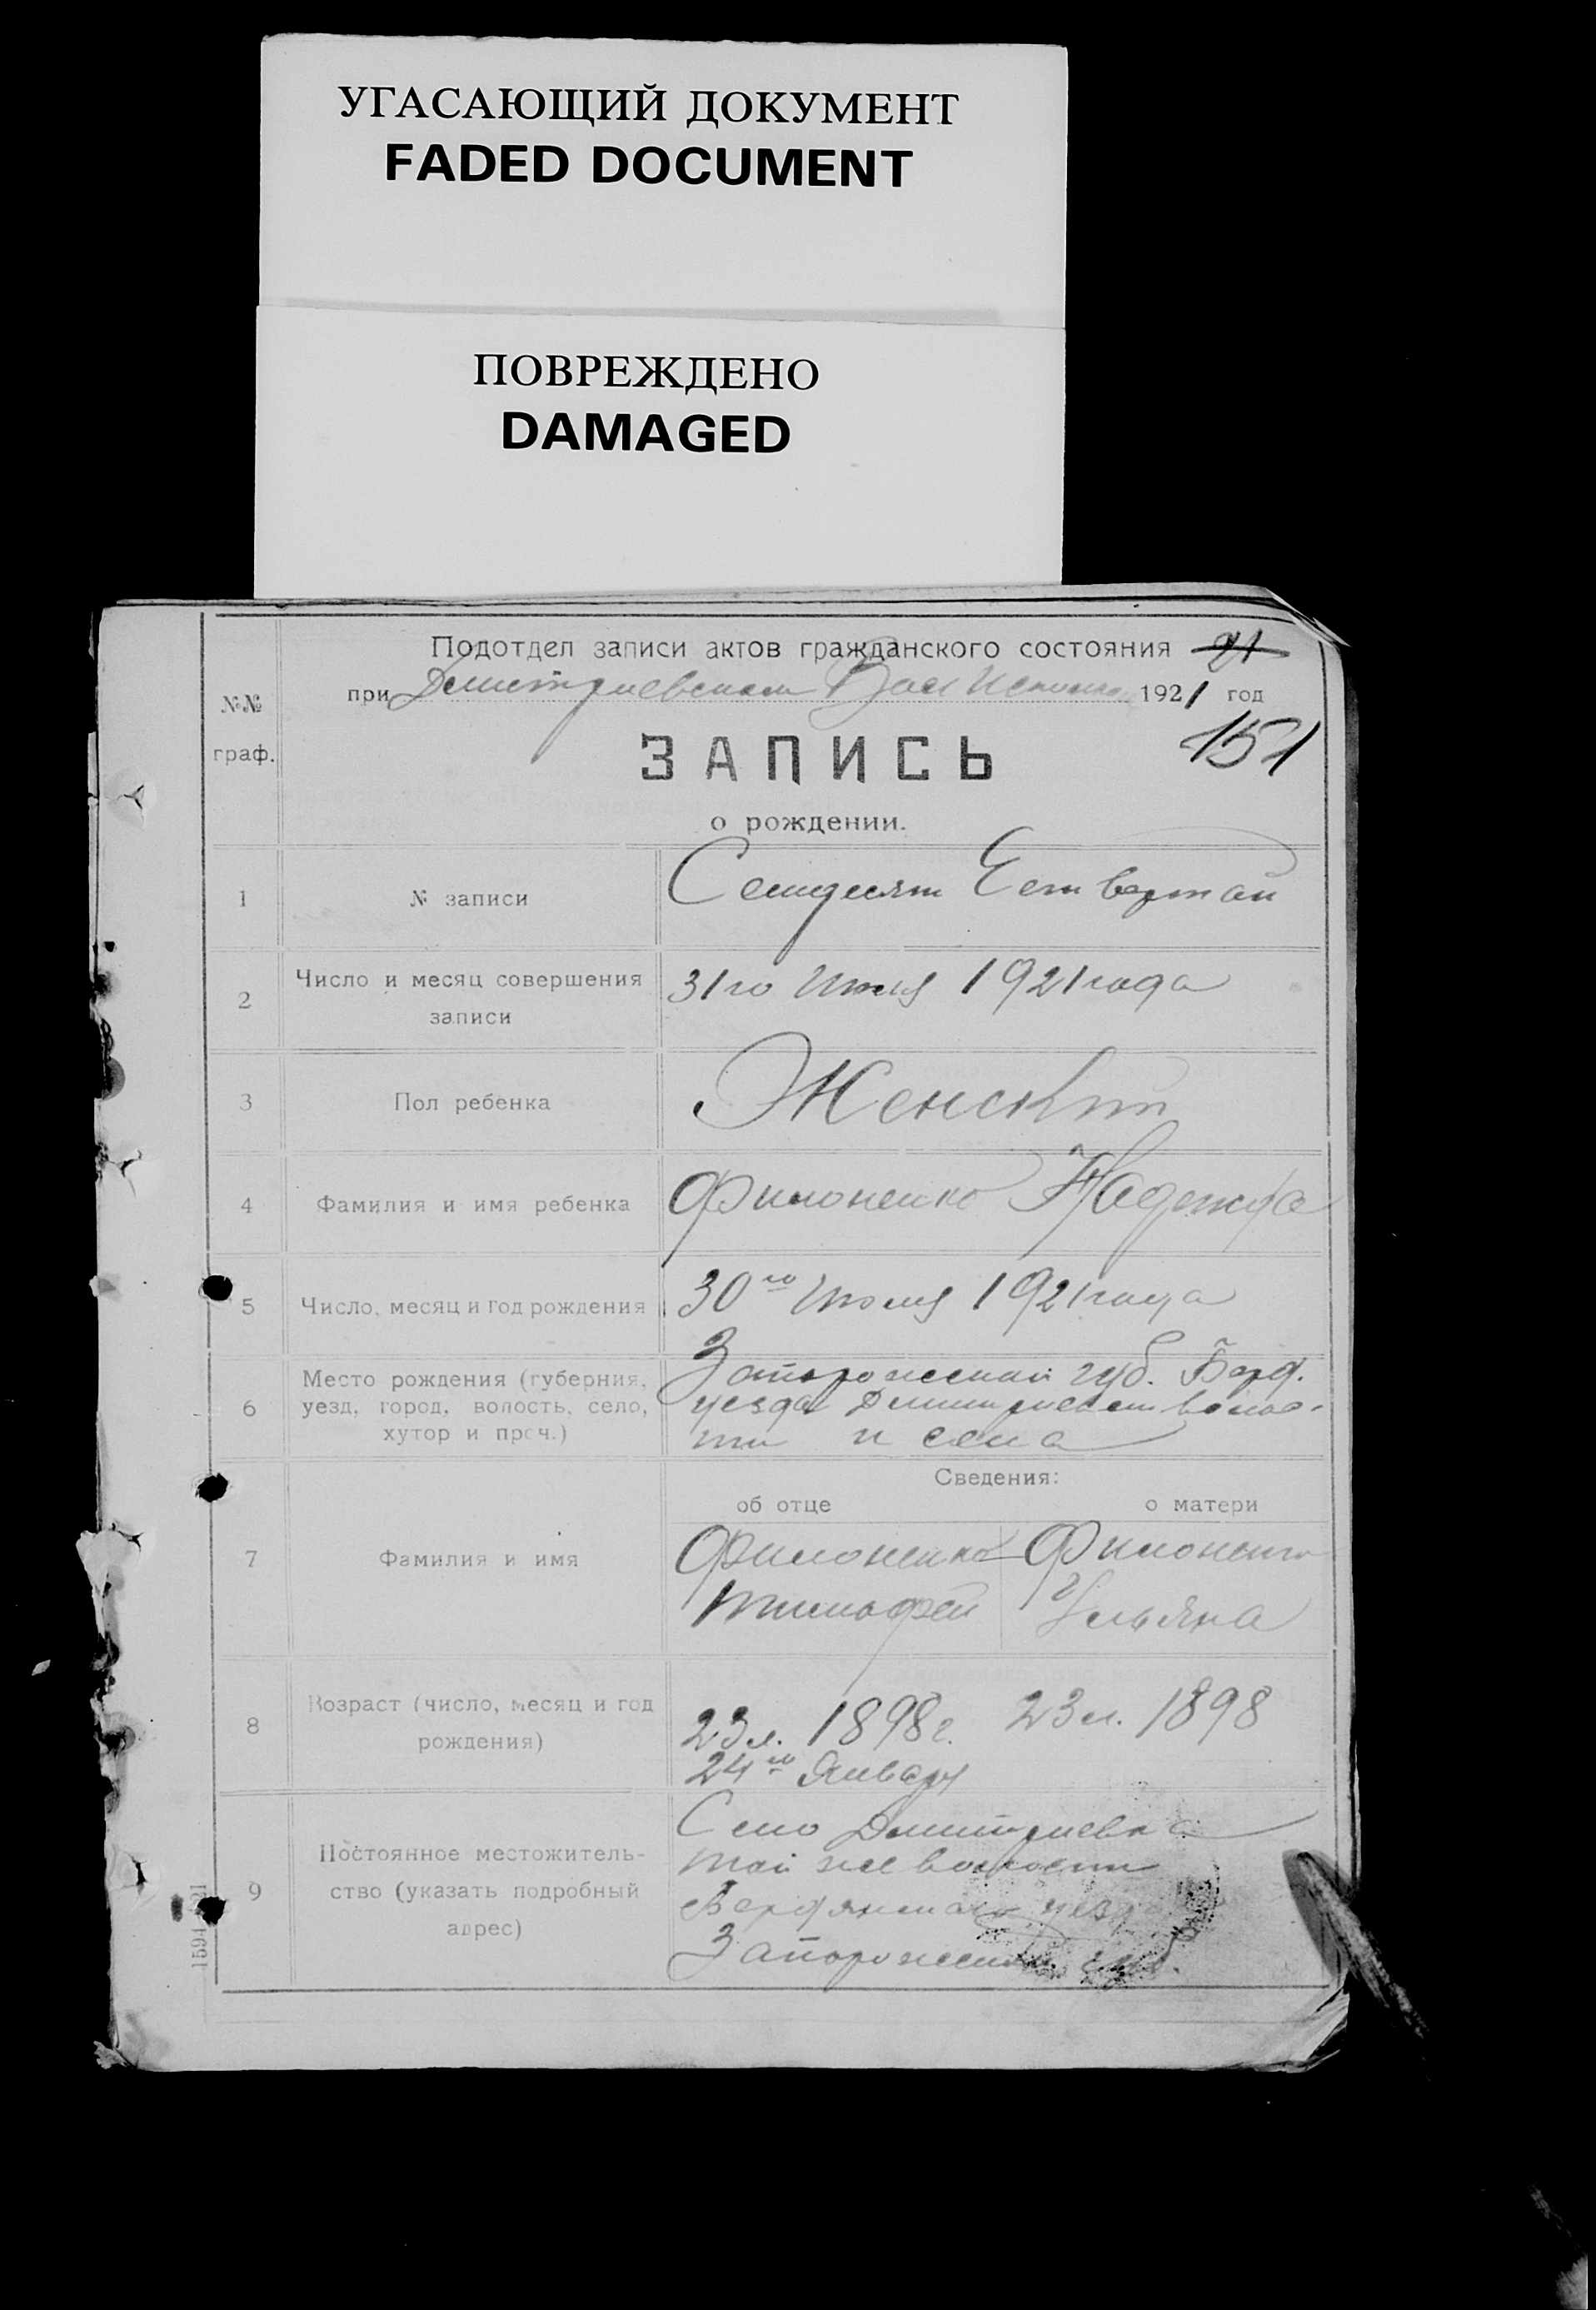 УГАСАЮЩИЙ ДОКУМЕНТ
FADED DOCUMENT
ПОВРЕЖДЕНО
DAMAGED
Подотдел записи актов гражданского состояния 21
при Дмитриевском Вол Исполком 1921 год
№№
граф.
151
ЗАПИСЬ
о рождении.
1 № записи Семидесят Четвертай
2 Число и месяц совершения записи 31го Июля 1921 года
3 Пол ребенка Женский
4 Фамилия и имя ребенка Филоненко Надежда
5 Число, месяц и год рождения 30го Июля 1921 года
6 Место рождения (губерния, Запорожской губ. Берд.
уезд, город, волость, село, уезда Дмитриевской волос-
хутор и проч.) ти и села
Сведения:
об отце о матери
7 Фамилия и имя Филоненко Филоненко
Тимофей Ульяна
8 Возраст (число, месяц и год 23 л. 1898 г. 23 л. 1898
рождения) 24го Января
Село Дмитриевка
Постоянное местожитель- той же волости
9 ство (указать подробный Бердянского уезда
адрес) Запорожской губ.